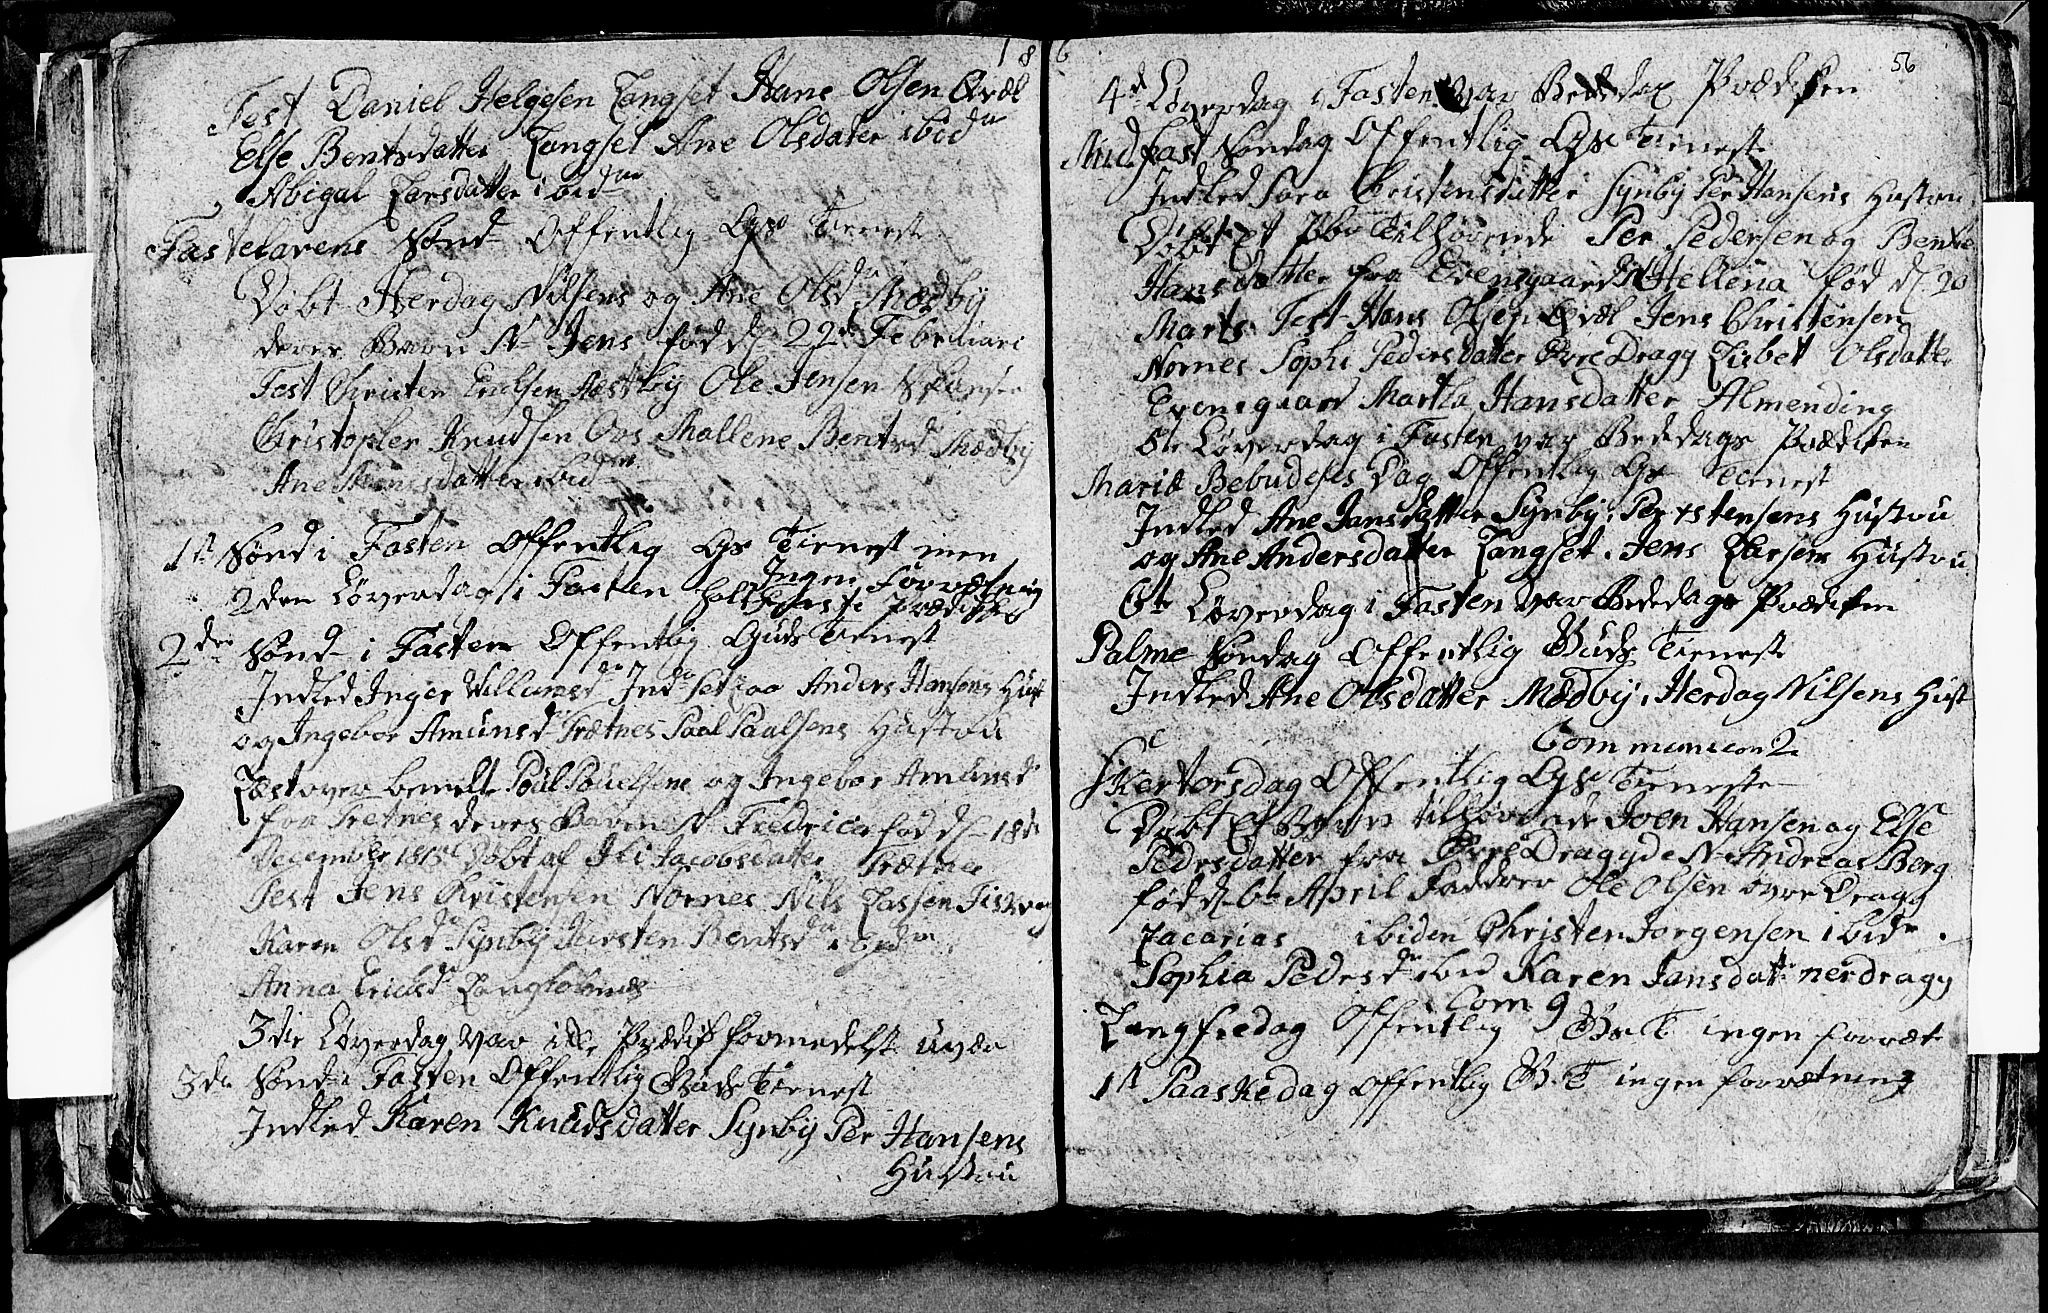 18
Test Daniel Helgesen Langset Hans Olsen Qvæl
Else Bentsdatter Langset Ane Olsdater ibid
Abigal Larsdatter ibid
Fastelavens Sønd Offentlig Gs Tieneste
Døbt Herdag Nilsens og Ane Olsd Mædby
deres Barn N Jens fød d 22d Februari
Test Christen Ericksen Ole Jensen
Christopher Knudsen Mallene Bentsd Mædby
Ane datter ibid
1st Sønd i Fasten Offentlig Gs Tienest men
Ingen Forrætning
2den Løverdag i Fasten holt Prædiken
2den Sønd i Fasten Offentlig Guds Tienest
Indled Inger Willumsd Indset Anders Hansens Hust
og Ingebor Amunsd Trætnes Paal Paalsens Hustru
Læst over bemelte Poul Pouelsens og Ingebor Amunsd
fra Tretnes deres Barn N Fredrica fød d 18de
December 1815 Døbt af Jacobsdatter Trætnes
Test Jens Kristensen Nornes Nils Lassen
Karen Olsd Synby Kirsten Bentsd ibid
Anna Ericksd Langholmes
3die Løverdag var ikke Prædik formedelst uvær
3de Sønd i Fasten Offentlig Guds Tienest
Indled Karen Knudsdatter Synby Per Hansens
Hustru
6
56
4d Løverdag i Fasten var Bededags Prædiken
Midfast Søndag Offentlig Gs Tieneste
Indled Sara Christensdatter Synby Per Hansens Hustru
Døbt Et Tilhørende Per Pedersen og Bente
Hansdatter fra Evensgaard N Hellena fød d 20
Marts Test Hans Olsen Qvæl Jens Christensen
Nornes Sophi Pedersdatter Øvre Dragy Lisbet Olsdatter
Evensgaard Martha Hansdatter Almending
5te Løverdag i Fasten var Bededags Prædiken
Mariæ Bebudelses Dag Offentlig Gs Tienest
Indled Ane Jansdatter Synby, Per Hustru
og Ane Andersdatter Langset, Jens Larsens Hustru
6te Løverdag i Fasten var Bededags Prædiken
Palme Søndag Offentlig Guds Tieneste
Indled Ane Olsdatter Mædby, Herdag Nilsens Hust
Communicon 2
Skertorsdag Offentlig Gs Tieneste
Døbt Et Barn tilhørende Joen Hansen og Else
Pedersdatter fra Øvre Dragy de N Andreas Berg
fød d 6te April Faddrer Ole Olsen øvre Dragy
Zacarias ibiden Christen Jorgensen ibid
Sophia Pedersd ibid Karen Jansdatt nerdragy
Com 9
Langfredag Offentlig G T ingen forræt
1st Paaskedag Offentlig G. T ingen forrætning